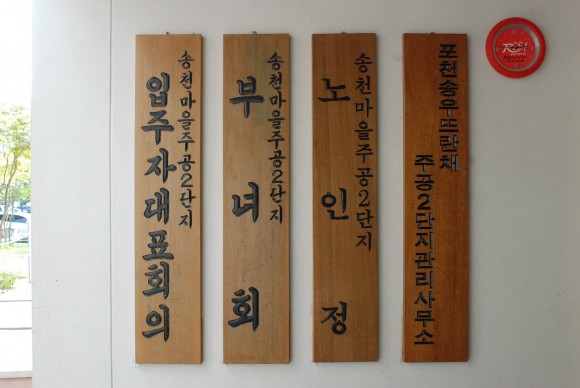 송천마을주공2단지
입주자대표회의
송천마을주공2단지
부녀회
송천마을주공2단지
노인정
포천송우뜨란채
주공2단지관리사무소